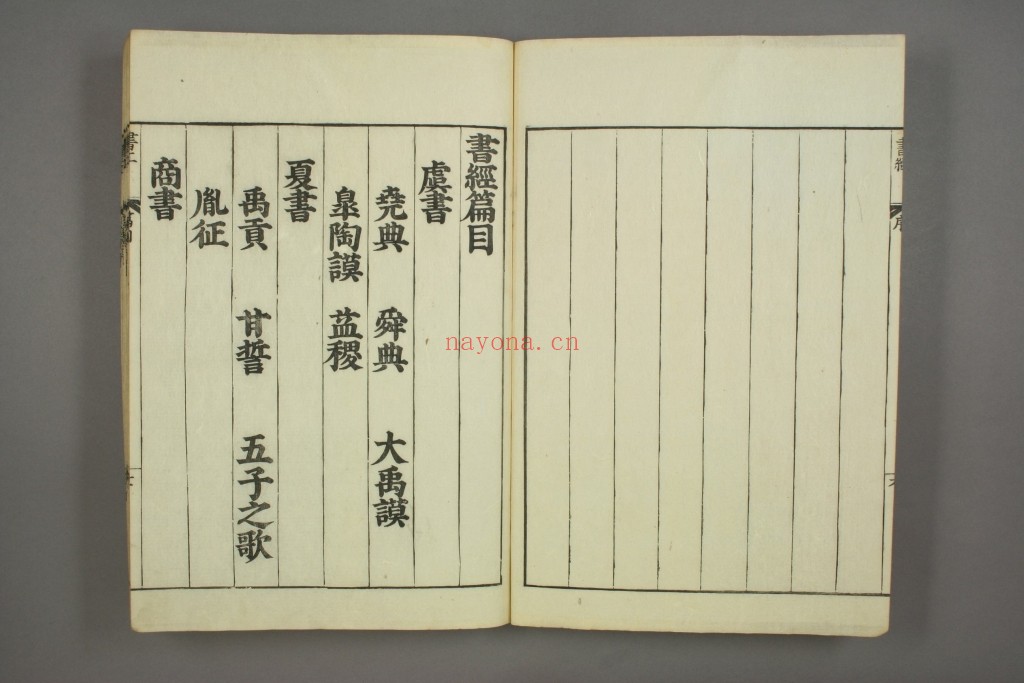 書經篇目
虞書
堯典 舜典 大禹謨
皐陶謨 益稷
夏書
禹貢 甘誓 五子之歌
胤征
商書
nayona.cn